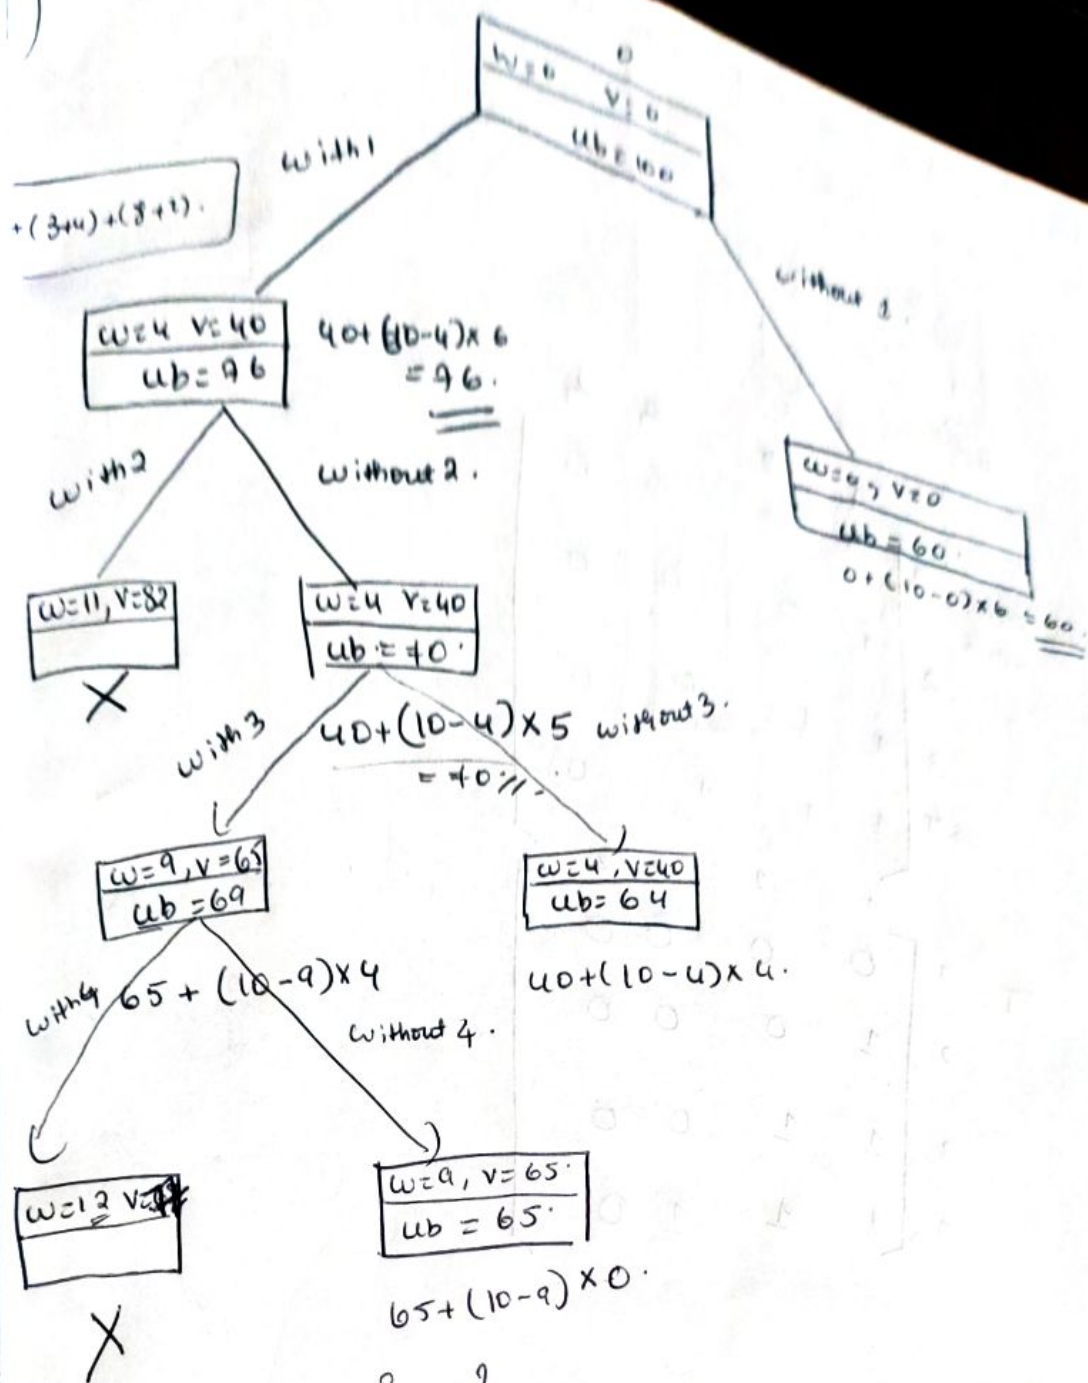 0
W=0 V=0
ub=100
with 1
+(3+4)+(8+2).
without 1.
w=4 V=40
ub=96
40+(10-4)x6
=96.
with 2
without 2.
V=0
ub=60
0+(10-0)x6=60.
w=11, V=82
w=4 V=40
ub=70.
X
with 3
40+(10-4)x5
without 3.
=70
w=9, V=65
ub=69
w=4, V=40
ub=64
with 4
65+(10-9)x4
40+(10-4)x4.
without 4.
w=12 V=
w=9, V=65.
ub=65.
X
65+(10-9)x0.